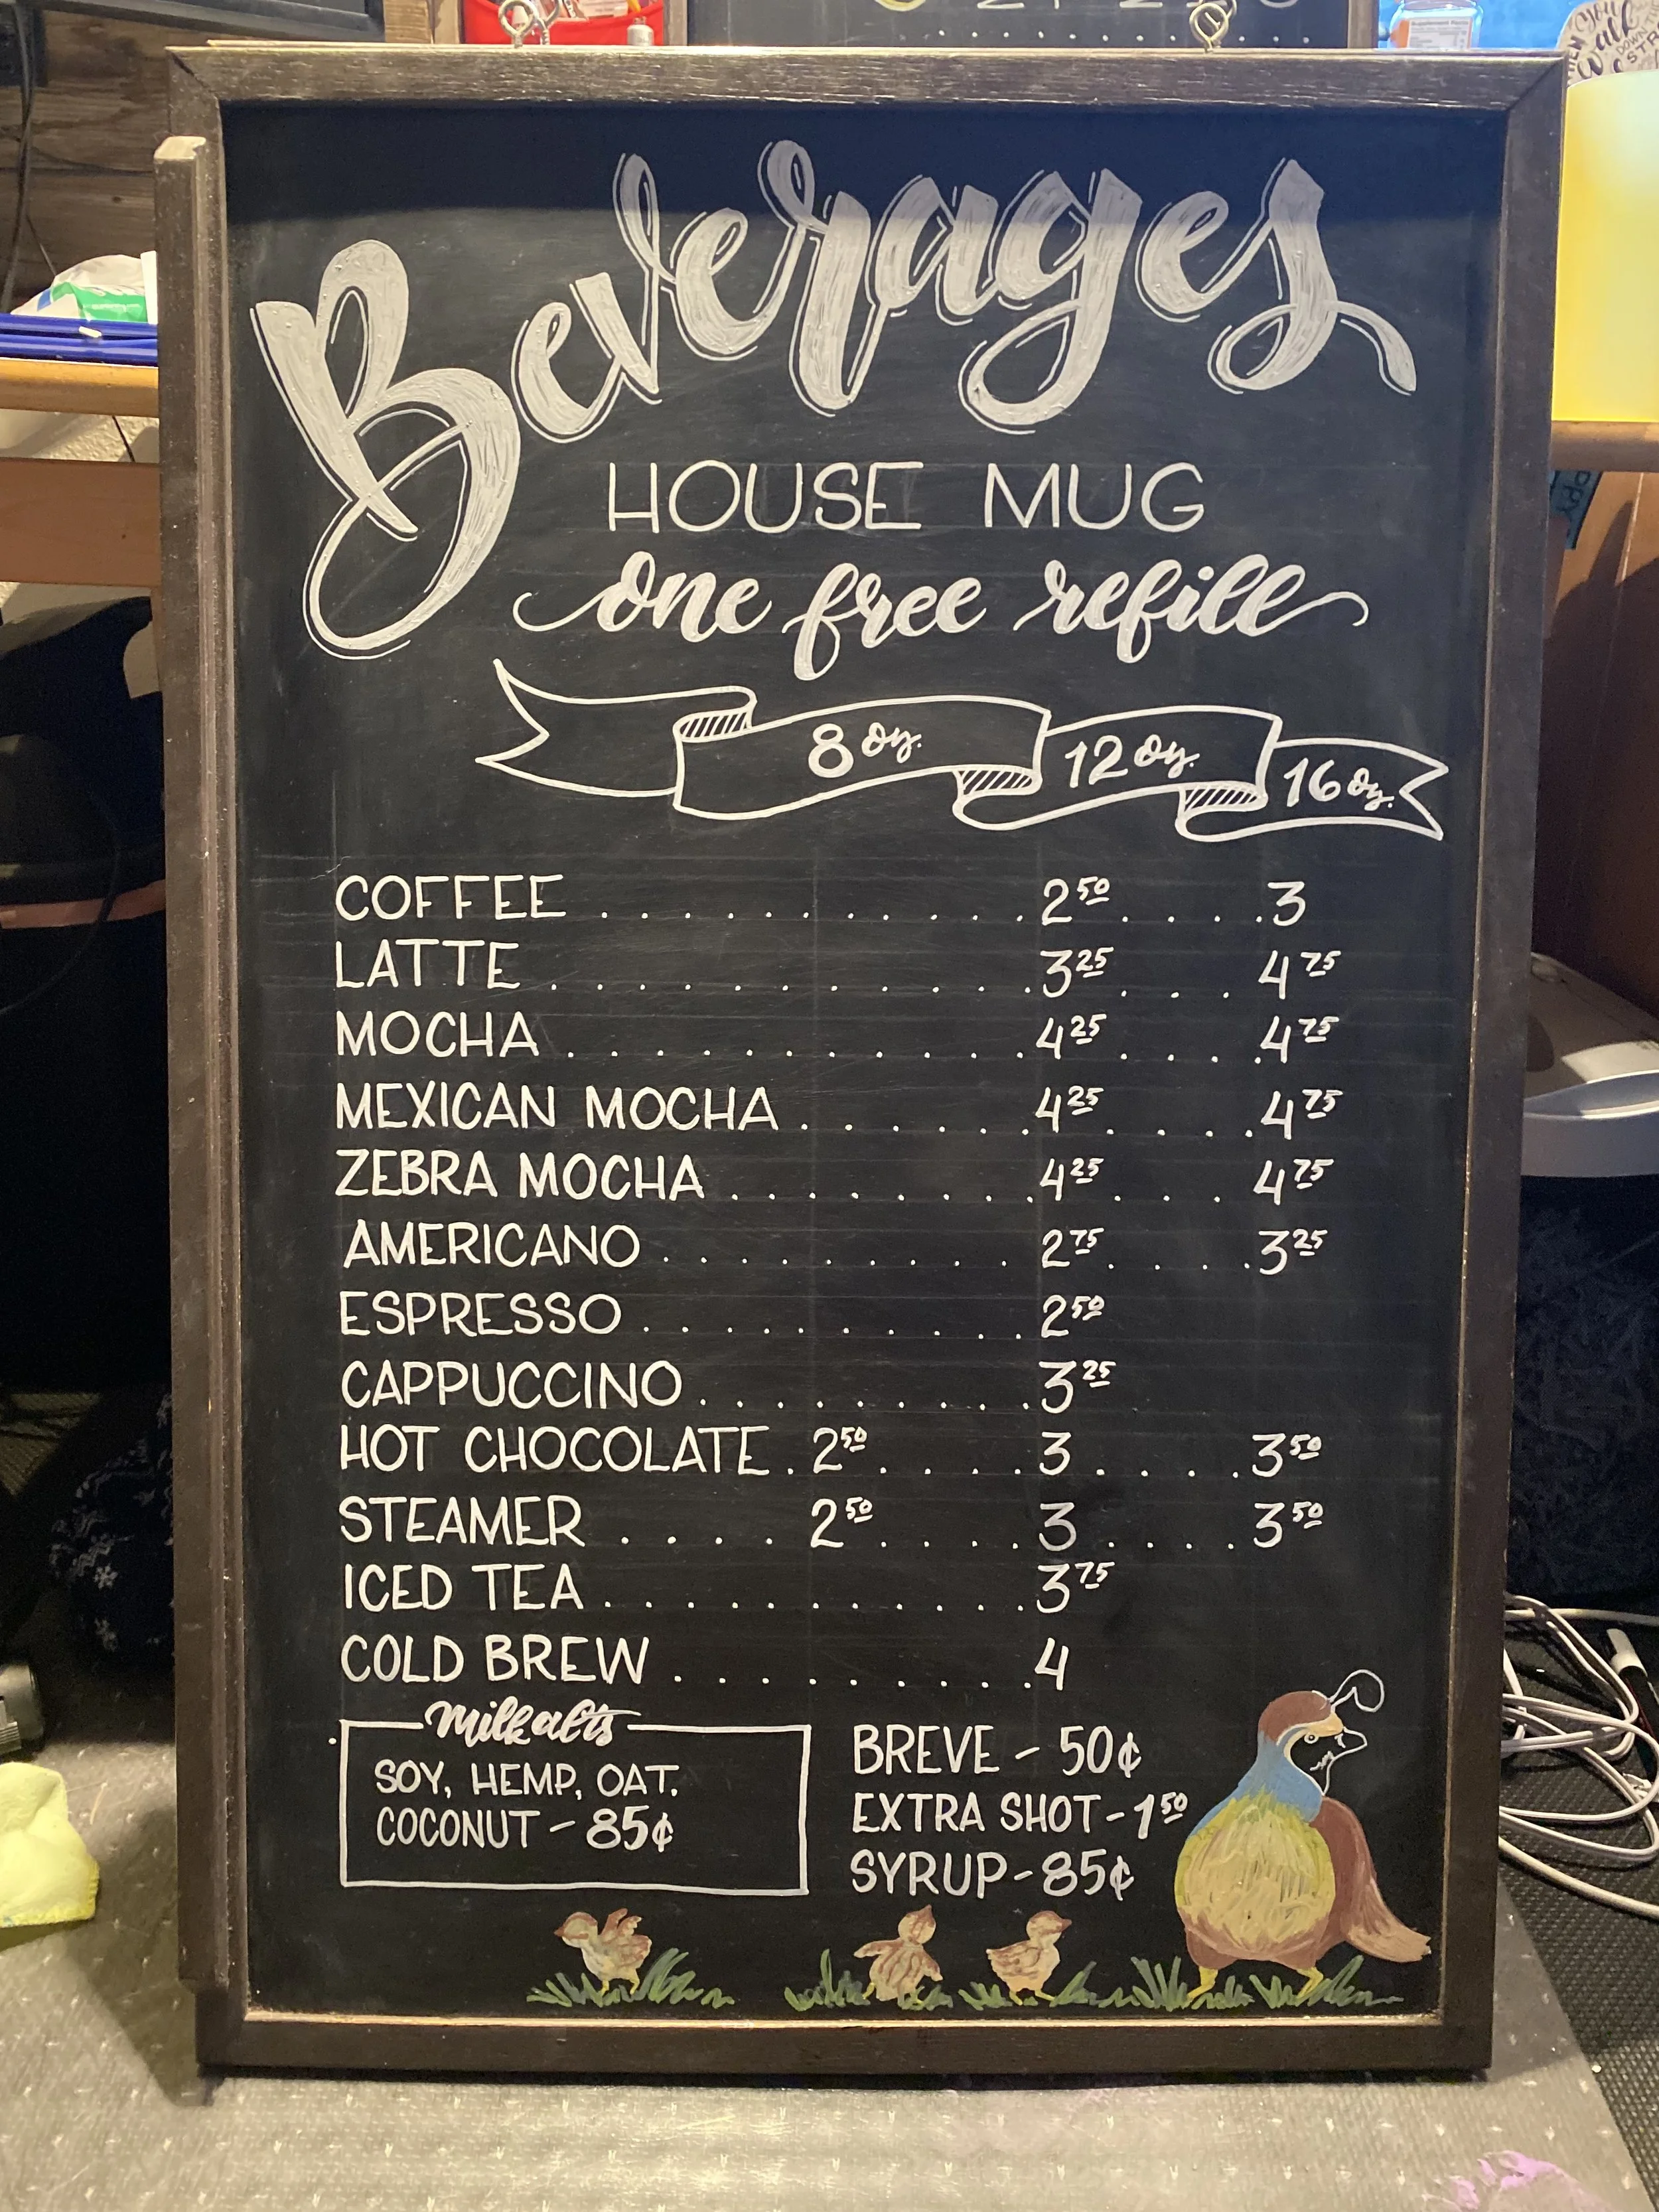 Beverages
HOUSE MUG
one free refill
8 oz. 12 oz. 16 oz.
COFFEE . . . . . . . . . . . 2 50 . . . . 3
LATTE . . . . . . . . . . . . 3 25 . . . 4 75
MOCHA . . . . . . . . . . . . 4 25 . . . . 4 75
MEXICAN MOCHA . . . . . . 4 25 . . . . 4 75
ZEBRA MOCHA . . . . . . . . 4 25 . . . 4 75
AMERICANO . . . . . . . . . 2 75 . . . . 3 25
ESPRESSO . . . . . . . . . . 2 50
CAPPUCCINO . . . . . . . . . 3 25
HOT CHOCOLATE . 2 50 . . . . 3 . . . . 3 50
STEAMER . . . . 2 50 . . . . 3 . . . . 3 50
ICED TEA . . . . . . . . . . . 3 75
COLD BREW . . . . . . . . . 4
Milk alts
SOY, HEMP, OAT.
COCONUT - 85¢
BREVE - 50¢
EXTRA SHOT - 1 50
SYRUP - 85¢